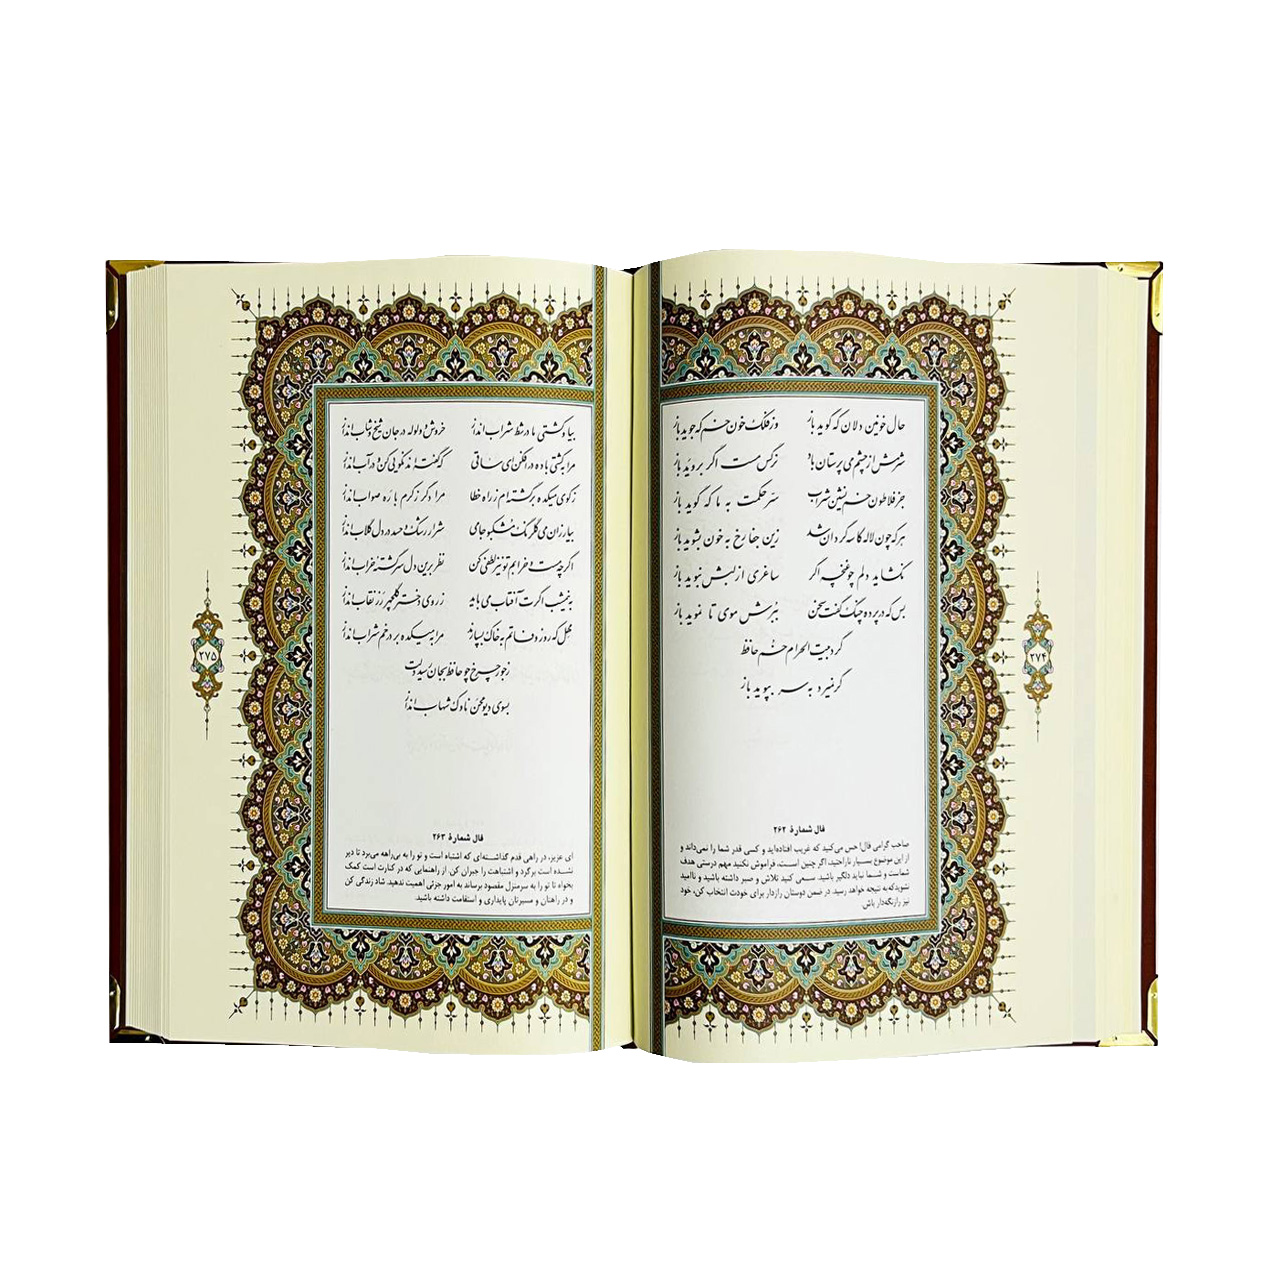 حال خونین دلان که گوید باز    وز فلک خون خم که جوید باز
شرمش از چشم می پرستان باد    نرگس مست اگر بروید باز
جز فلاطون خم نشین شراب    سر حکمت به ما که گوید باز
هر که چون لاله کاسه گردان شد    زین جفا رخ به خون بشوید باز
نگشاید دلم چو غنچه اگر    ساغری از لبش نبوید باز
بس که در پرده چنگ گفت سخن    ببرش موی تا نموید باز
گرد بیت الحرام خم حافظ
گر نمیرد به سر بپوید باز
فال شمارهٔ ۲۶۲
صاحب گرامی فال! حس می‌کنید که غریب افتاده‌اید و کسی قدر شما را نمی‌داند و
از این موضوع بسیار ناراحتید، اگر چنین است، فراموش نکنید مهم درستی هدف
شماست و شما نباید دلگیر باشید. سعی کنید تلاش و صبر داشته باشید و ناامید
نشوید که به نتیجه خواهد رسید. در ضمن دوستان رازدار برای خودت انتخاب کن، خود
نیز رازنگه‌دار باش.
۲۷۴
بیا و کشتی ما در شط شراب انداز    خروش و ولوله در جان شیخ و شاب انداز
مرا به کشتی باده در افکن ای ساقی    که گفته‌اند نکویی کن و در آب انداز
ز کوی میکده برگشته‌ام ز راه خطا    مرا دگر ز کرم با ره صواب انداز
بیار زان می گلرنگ مشکبو جامی    شرار رشک و حسد در دل گلاب انداز
اگر چه مست و خرابم تو نیز لطفی کن    نظر برین دل سرگشته خراب انداز
به نیمشب اگرت آفتاب می باید    ز روی دختر گلچهر رز نقاب انداز
مهل که روز وفاتم به خاک بسپارند    مرا به میکده بر در خم شراب انداز
ز جور چرخ چو حافظ بجان رسید دلت
بسوی دیو محن ناوک شهاب انداز
فال شمارهٔ ۲۶۳
ای عزیز، در راهی قدم گذاشته‌ای که اشتباه است و تو را به بی‌راهه می‌برد تا دیر
نشده است برگرد و اشتباهت را جبران کن. از راهنمایی که در کنارت است کمک
بخواه تا تو را به سرمنزل مقصود برساند به امور جزئی اهمیت ندهید. شاد زندگی کن
و در راهتان و مسیرتان پایداری و استقامت داشته باشید.
۲۷۵